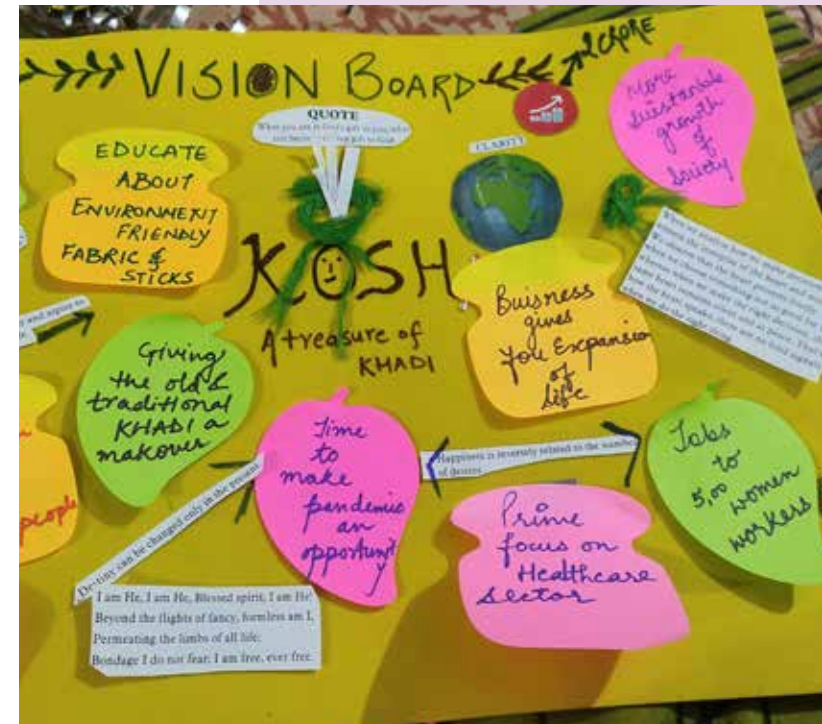 VISION BOARD
2 CRORE
More
Suistanable
growth
of
Society
QUOTE
What you are is God's gift to you, what
you become
CLARITY
EDUCATE
ABOUT
ENVIRONMENT
FRIENDLY
FABRIC &
STICKS
KOSH
A treasure of
KHADI
Buisness
gives
You Expansion
of
Life
Giving
the old &
traditional
KHADI a
makeover
people
Time
to
make
pandemic
an
opportunity
Happiness is inversely related to the number
of desires
Jobs
to
5,00 women
workers
Prime
focus on
Healthcare
Sector
Destiny can be changed only in the present.
I am He, I am He, Blessed spirit, I am He!
Beyond the flights of fancy, formless am I,
Permeating the limbs of all life;
Bondage I do not fear; I am free, ever free.